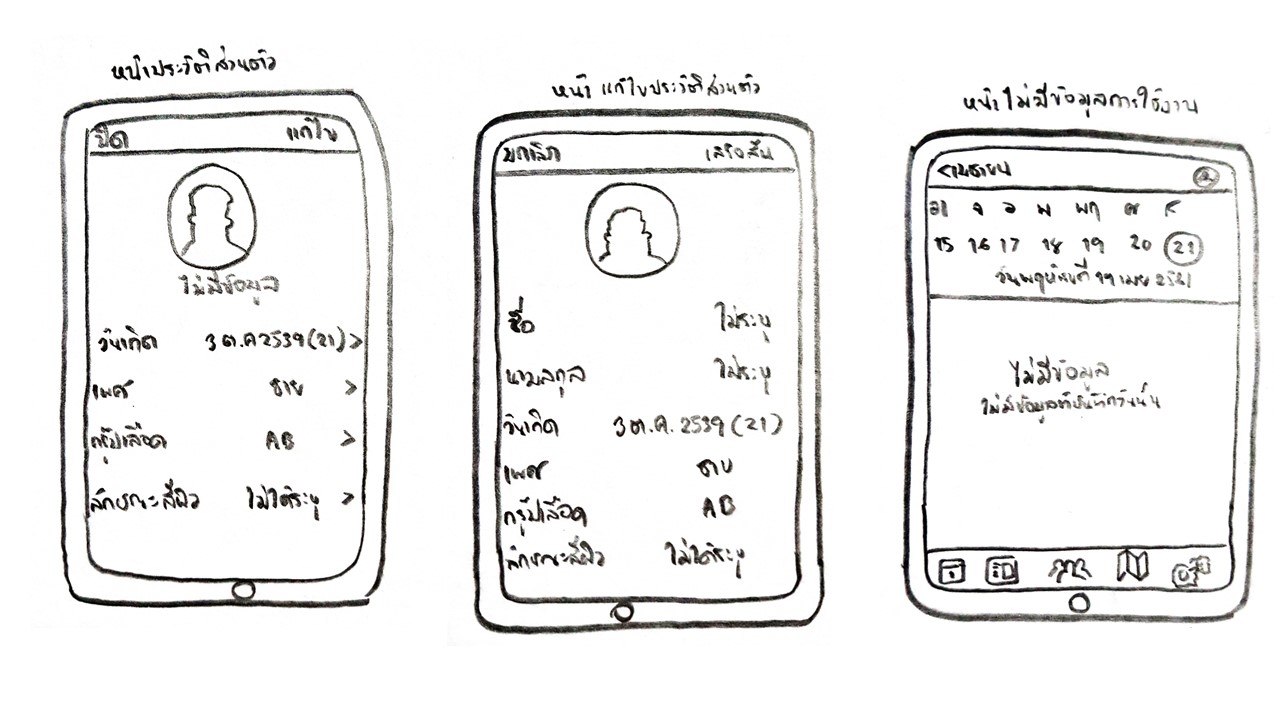 หน้าประวัติส่วนตัว
ปิด แก้ไข
ไม่มีข้อมูล
วันเกิด 3 ต.ค 2539 (21) >
เพศ ชาย >
กรุ๊ปเลือด AB >
ลักษณะสีผิว ไม่ได้ระบุ >
หน้า แก้ไขประวัติส่วนตัว
ยกเลิก เสร็จสิ้น
ชื่อ ไม่ระบุ
นามสกุล ไม่ระบุ
วันเกิด 3 ต.ค. 2539 (21)
เพศ ชาย
กรุ๊ปเลือด AB
ลักษณะสีผิว ไม่ได้ระบุ
หน้าไม่มีข้อมูลการใช้งาน
เมษายน
อา จ อ พ พฤ ศ ส
15 16 17 18 19 20 21
วันพฤหัสบดีที่ 19 เมษ 2561
ไม่มีข้อมูล
ไม่มีข้อมูลที่บันทึกวันนั้น